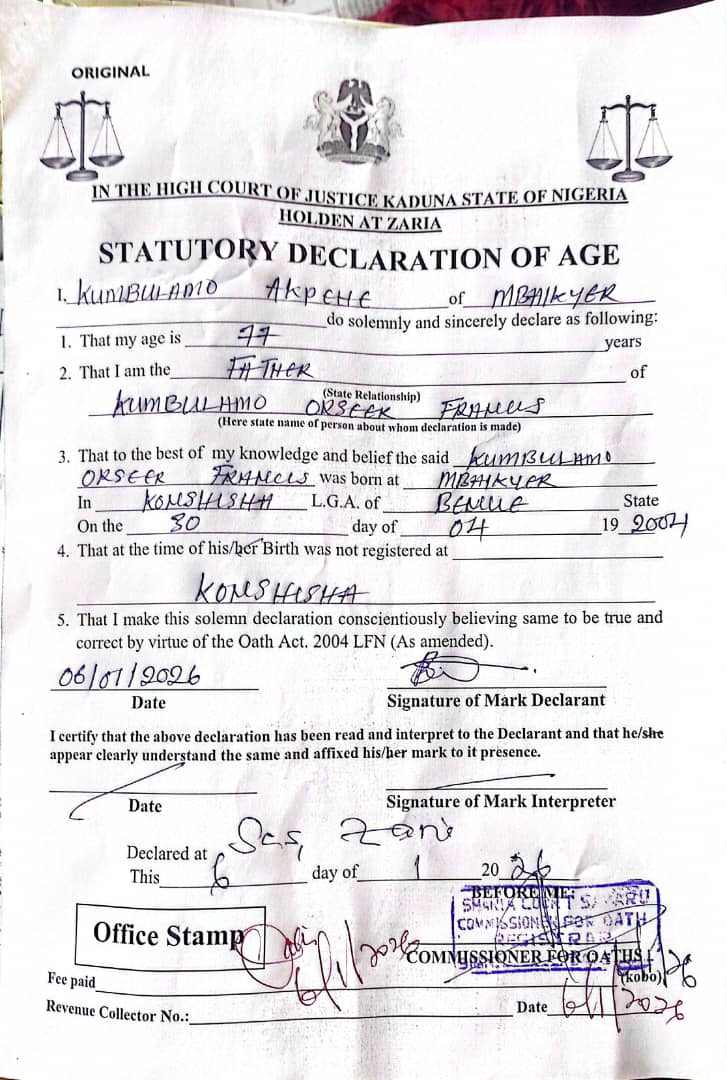 ORIGINAL
IN THE HIGH COURT OF JUSTICE KADUNA STATE OF NIGERIA
HOLDEN AT ZARIA
STATUTORY DECLARATION OF AGE
I. KUMBULAMO AKPEHE of MBAIKYER
do solemnly and sincerely declare as following:
1. That my age is 77 years
2. That I am the FATHER of
(State Relationship)
KUMBULAMO ORSEER FRANCIS
(Here state name of person about whom declaration is made)
3. That to the best of my knowledge and belief the said KUMBULAMO
ORSEER FRANCIS was born at MBAIKYER
In KONSHISHA L.G.A. of BENUE State
On the 30 day of 04 19 2004
4. That at the time of his/her Birth was not registered at
KONSHISHA
5. That I make this solemn declaration conscientiously believing same to be true and
correct by virtue of the Oath Act. 2004 LFN (As amended).
06/01/2026
Date
Signature of Mark Declarant
I certify that the above declaration has been read and interpret to the Declarant and that he/she
appear clearly understand the same and affixed his/her mark to it presence.
Date
Signature of Mark Interpreter
Declared at
This 6 day of 1 20 26
BEFORE ME:
COMMISSIONER FOR OATH
REGISTRAR
Office Stamp
6/1/2026
COMMISSIONER FOR OATHS
Fee paid (kobo)
Revenue Collector No.: Date 6/1/2026